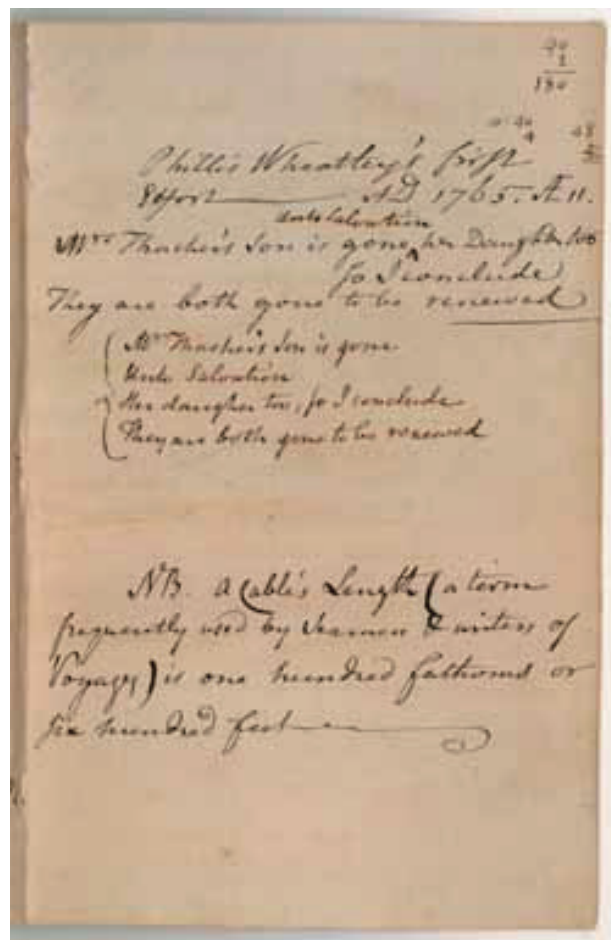 90
2
180
Phillis Wheatley's first
Effort AD 1765. Æ 11.
unto Salvation
Mrs Thacher's Son is gone ^ her Daughter too
so I conclude
They are both gone to be renewed
Mrs Thacher's Son is gone
Unto Salvation
Her daugher too, so I conclude
They are both gone to be renewed
NB. a Cable's Length (a term
frequently used by Seamen & writers of
Voyages) is one hundred fathoms or
six hundred feet